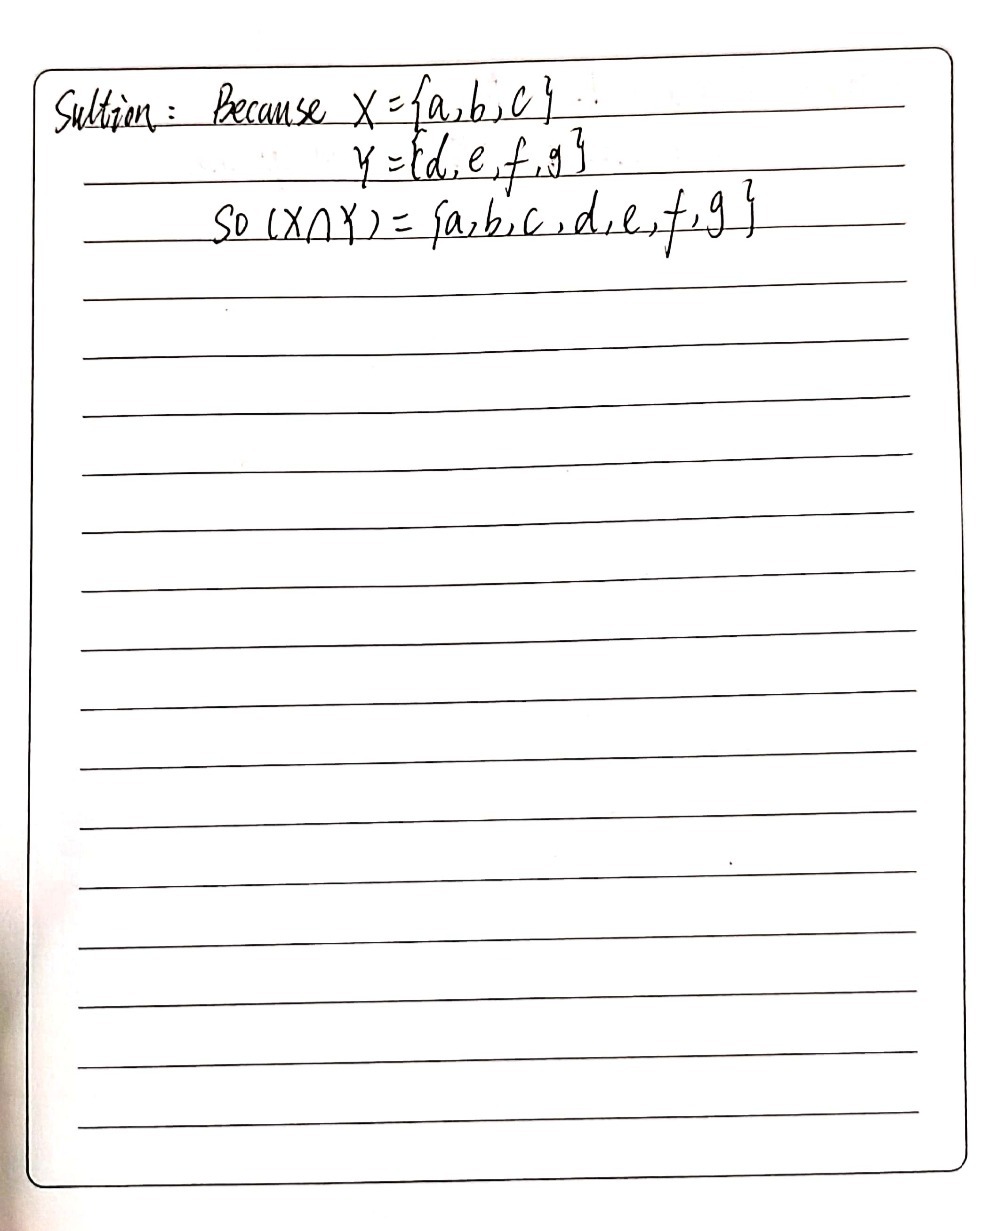 Sultion: Because X={a,b,c}
Y={d,e,f,g}
So (X∩Y)= {a,b,c,d,e,f,g}